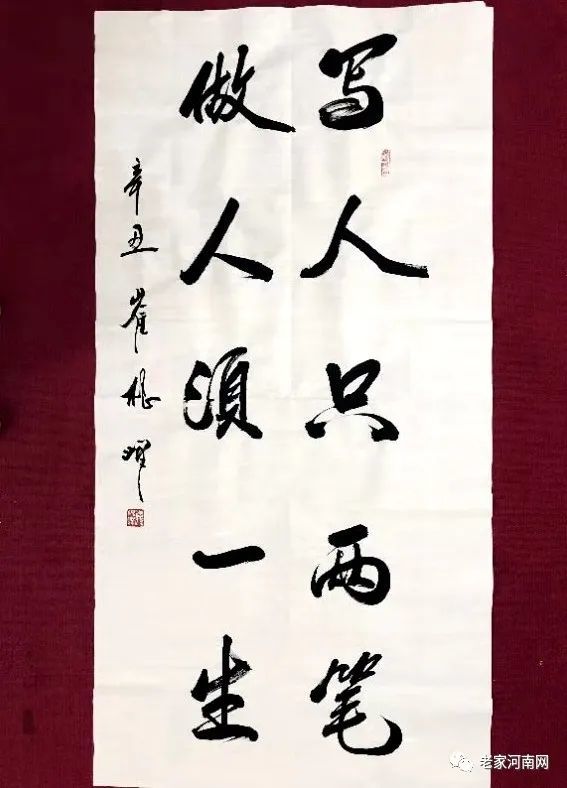 写人只两笔
做人须一生
辛丑 崔根曜
老家河南网